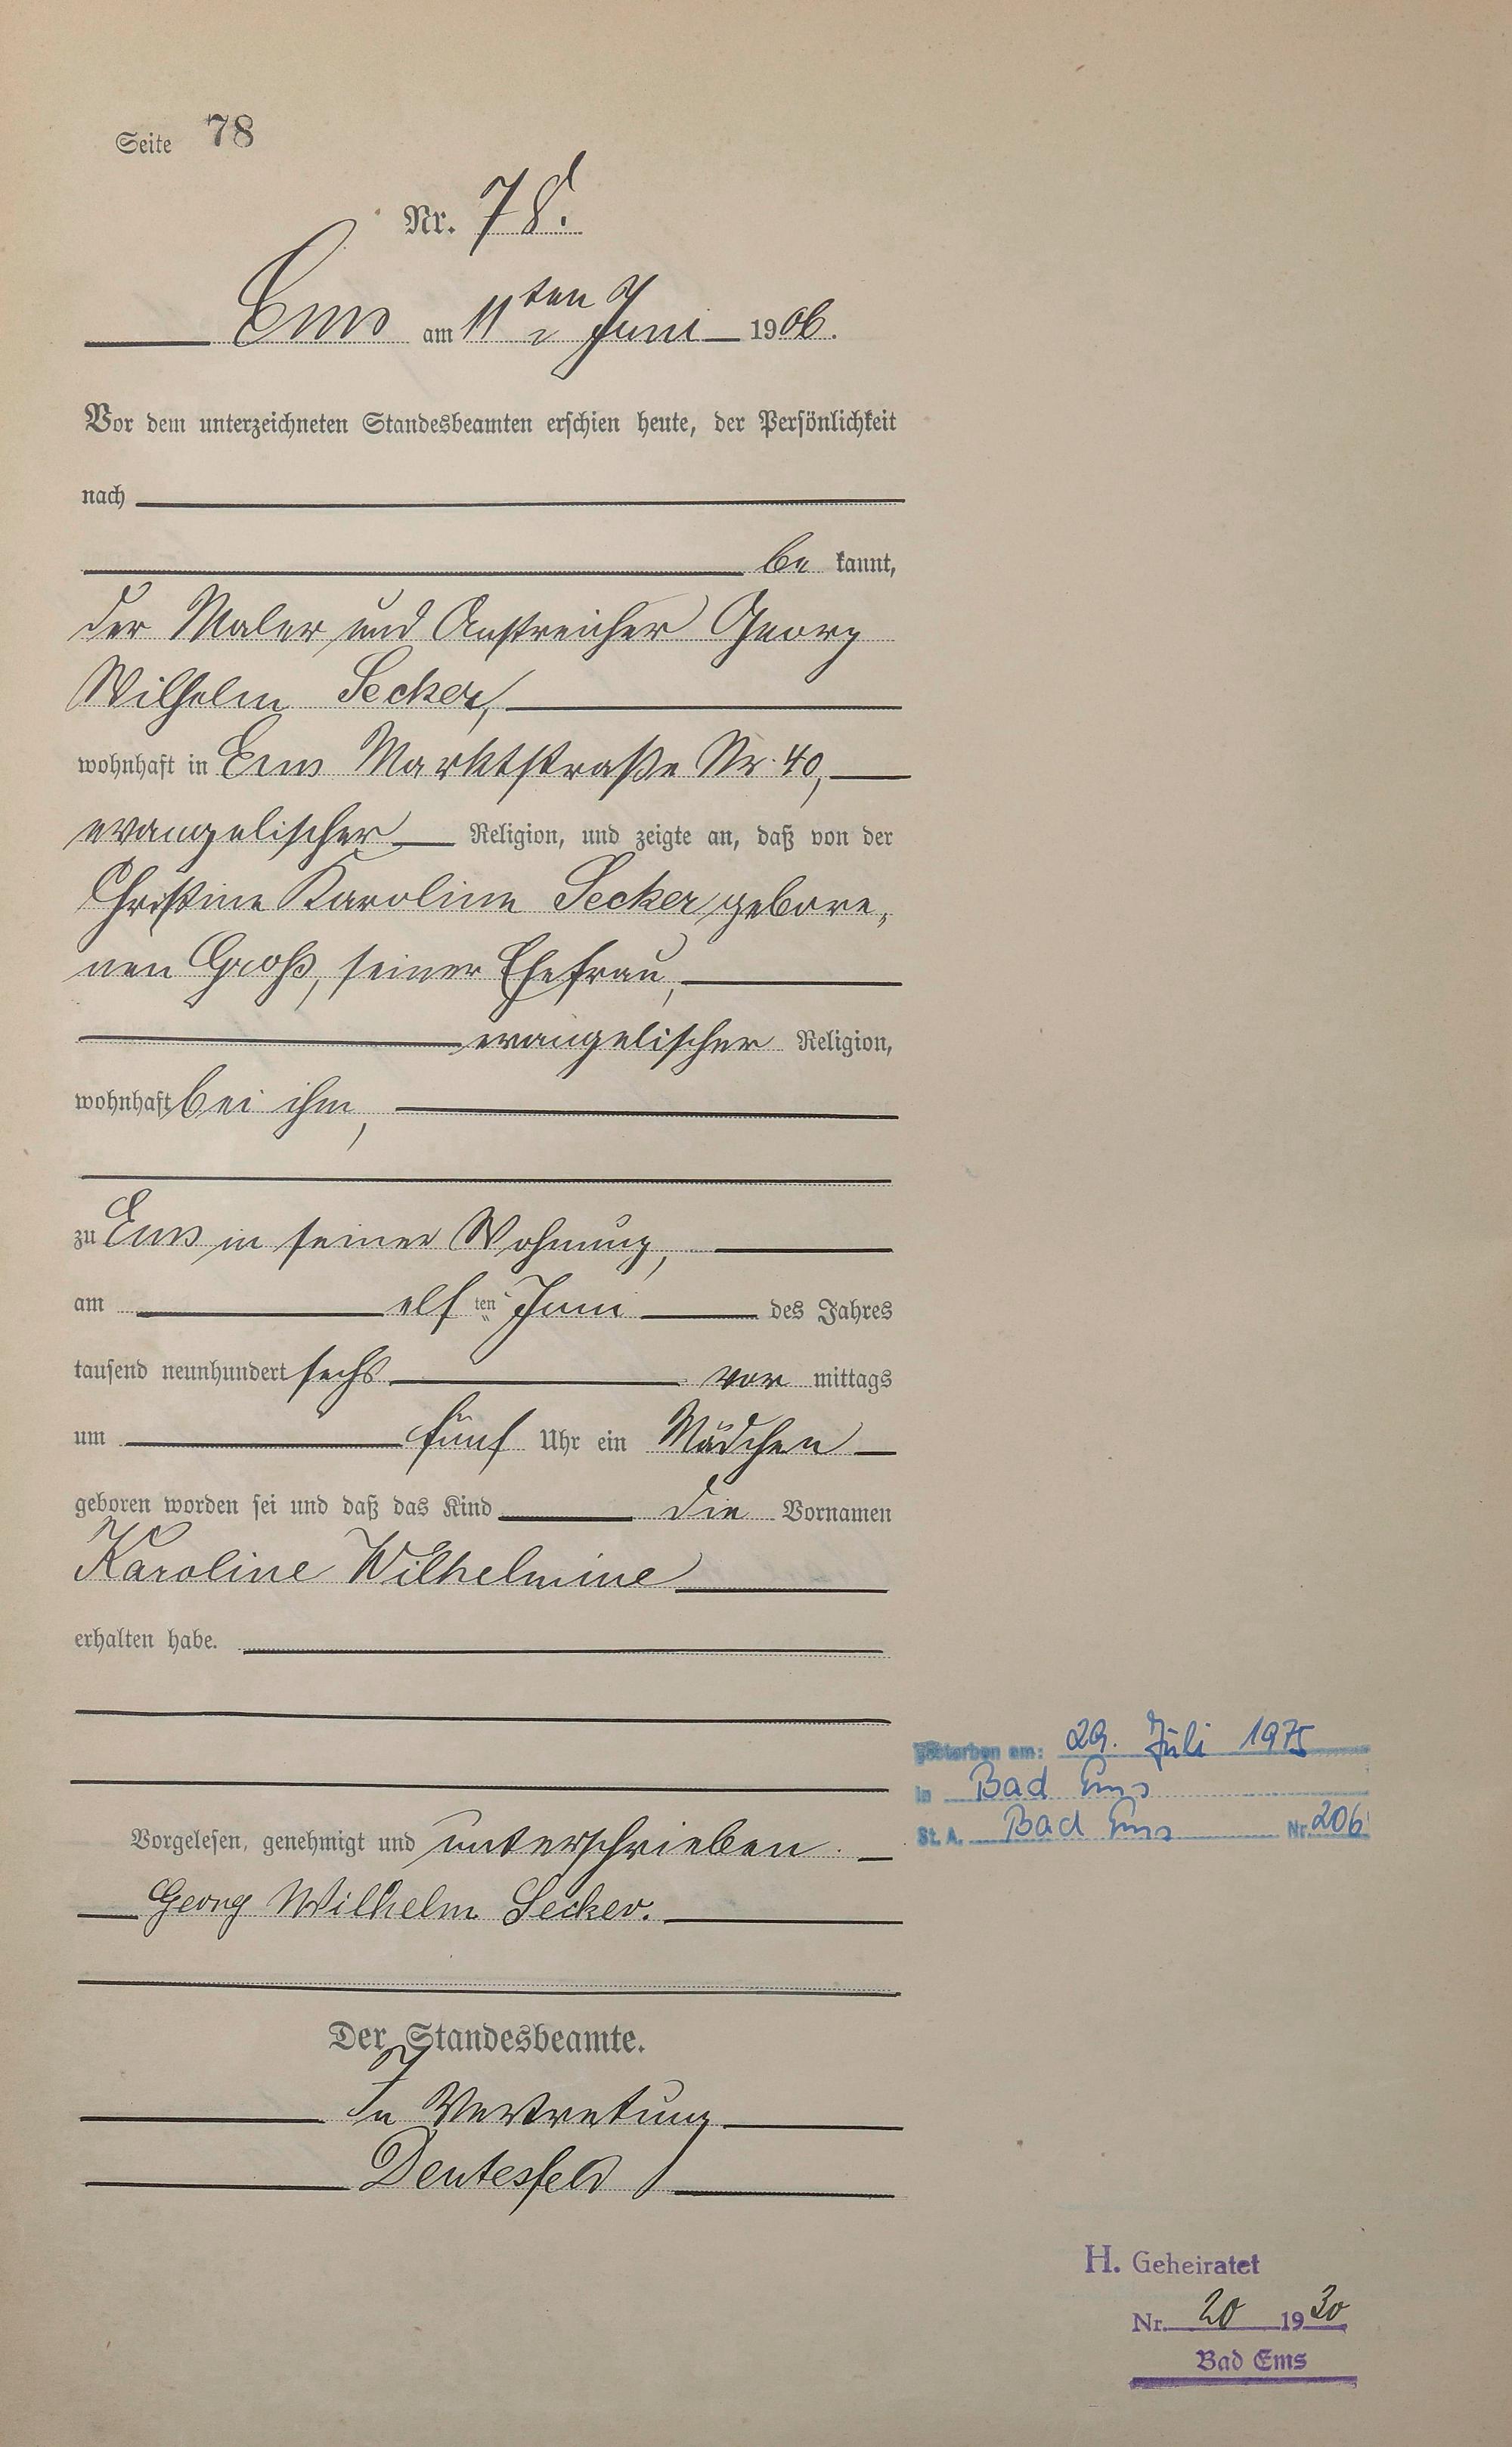 Seite 78
Nr. 78.
Ems am 11ten Juni 1906.
Vor dem unterzeichneten Standesbeamten erschien heute, der Persönlichkeit
nach
be kannt,
der Maler und Anstreicher Georg
Wilhelm Secker,
wohnhaft in Ems Marktstraße Nr. 40,
evangelischer Religion, und zeigte an, daß von der
Christine Karoline Secker gebore„
nen Groß, seiner Ehefrau,
evangelischer Religion,
wohnhaft bei ihm,
zu Ems in seiner Wohnung,
am elf ten Juni des Jahres
tausend neunhundert sechs vor mittags
um fünf Uhr ein Mädchen
geboren worden sei und daß das Kind die Vornamen
Karoline Wilhelmine
erhalten habe.
Vorgelesen, genehmigt und unterschrieben.
Georg Wilhelm Secker.
Der Standesbeamte.
In Vertretung
Deutesfeld
gestorben am: 29. Juli 1975
in Bad Ems
St. A. Bad Ems Nr. 206
H. Geheiratet
Nr. 20 1930
Bad Ems